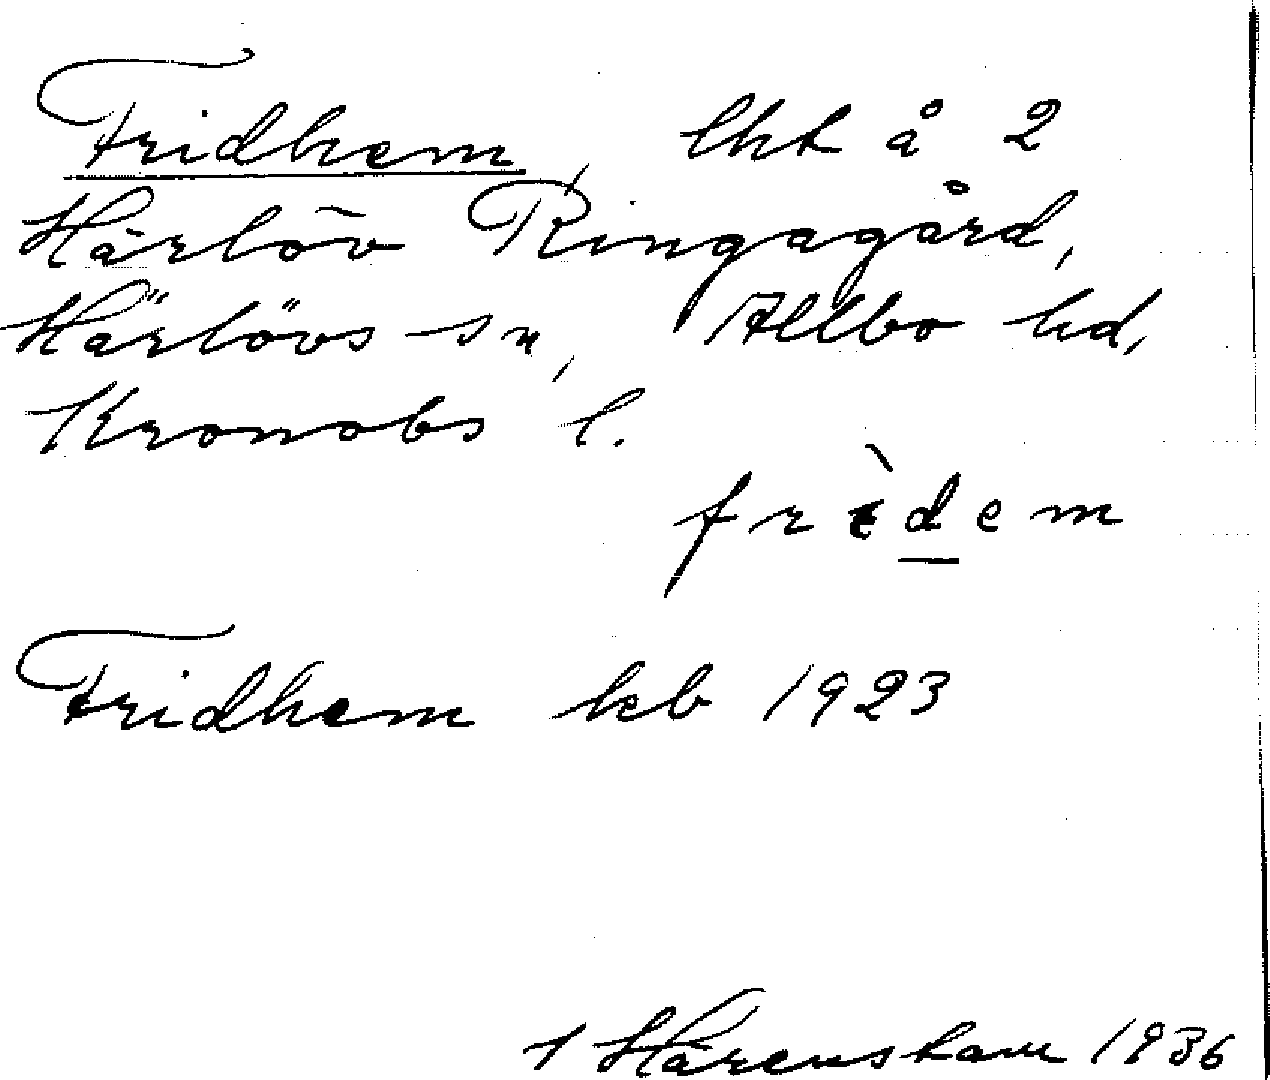 Fridhem, lht å 2
Härlöv Ringagård,
Härlövs sn, Allbo hd,
Kronobs l.
frèdem
Fridhem kb 1923
1936